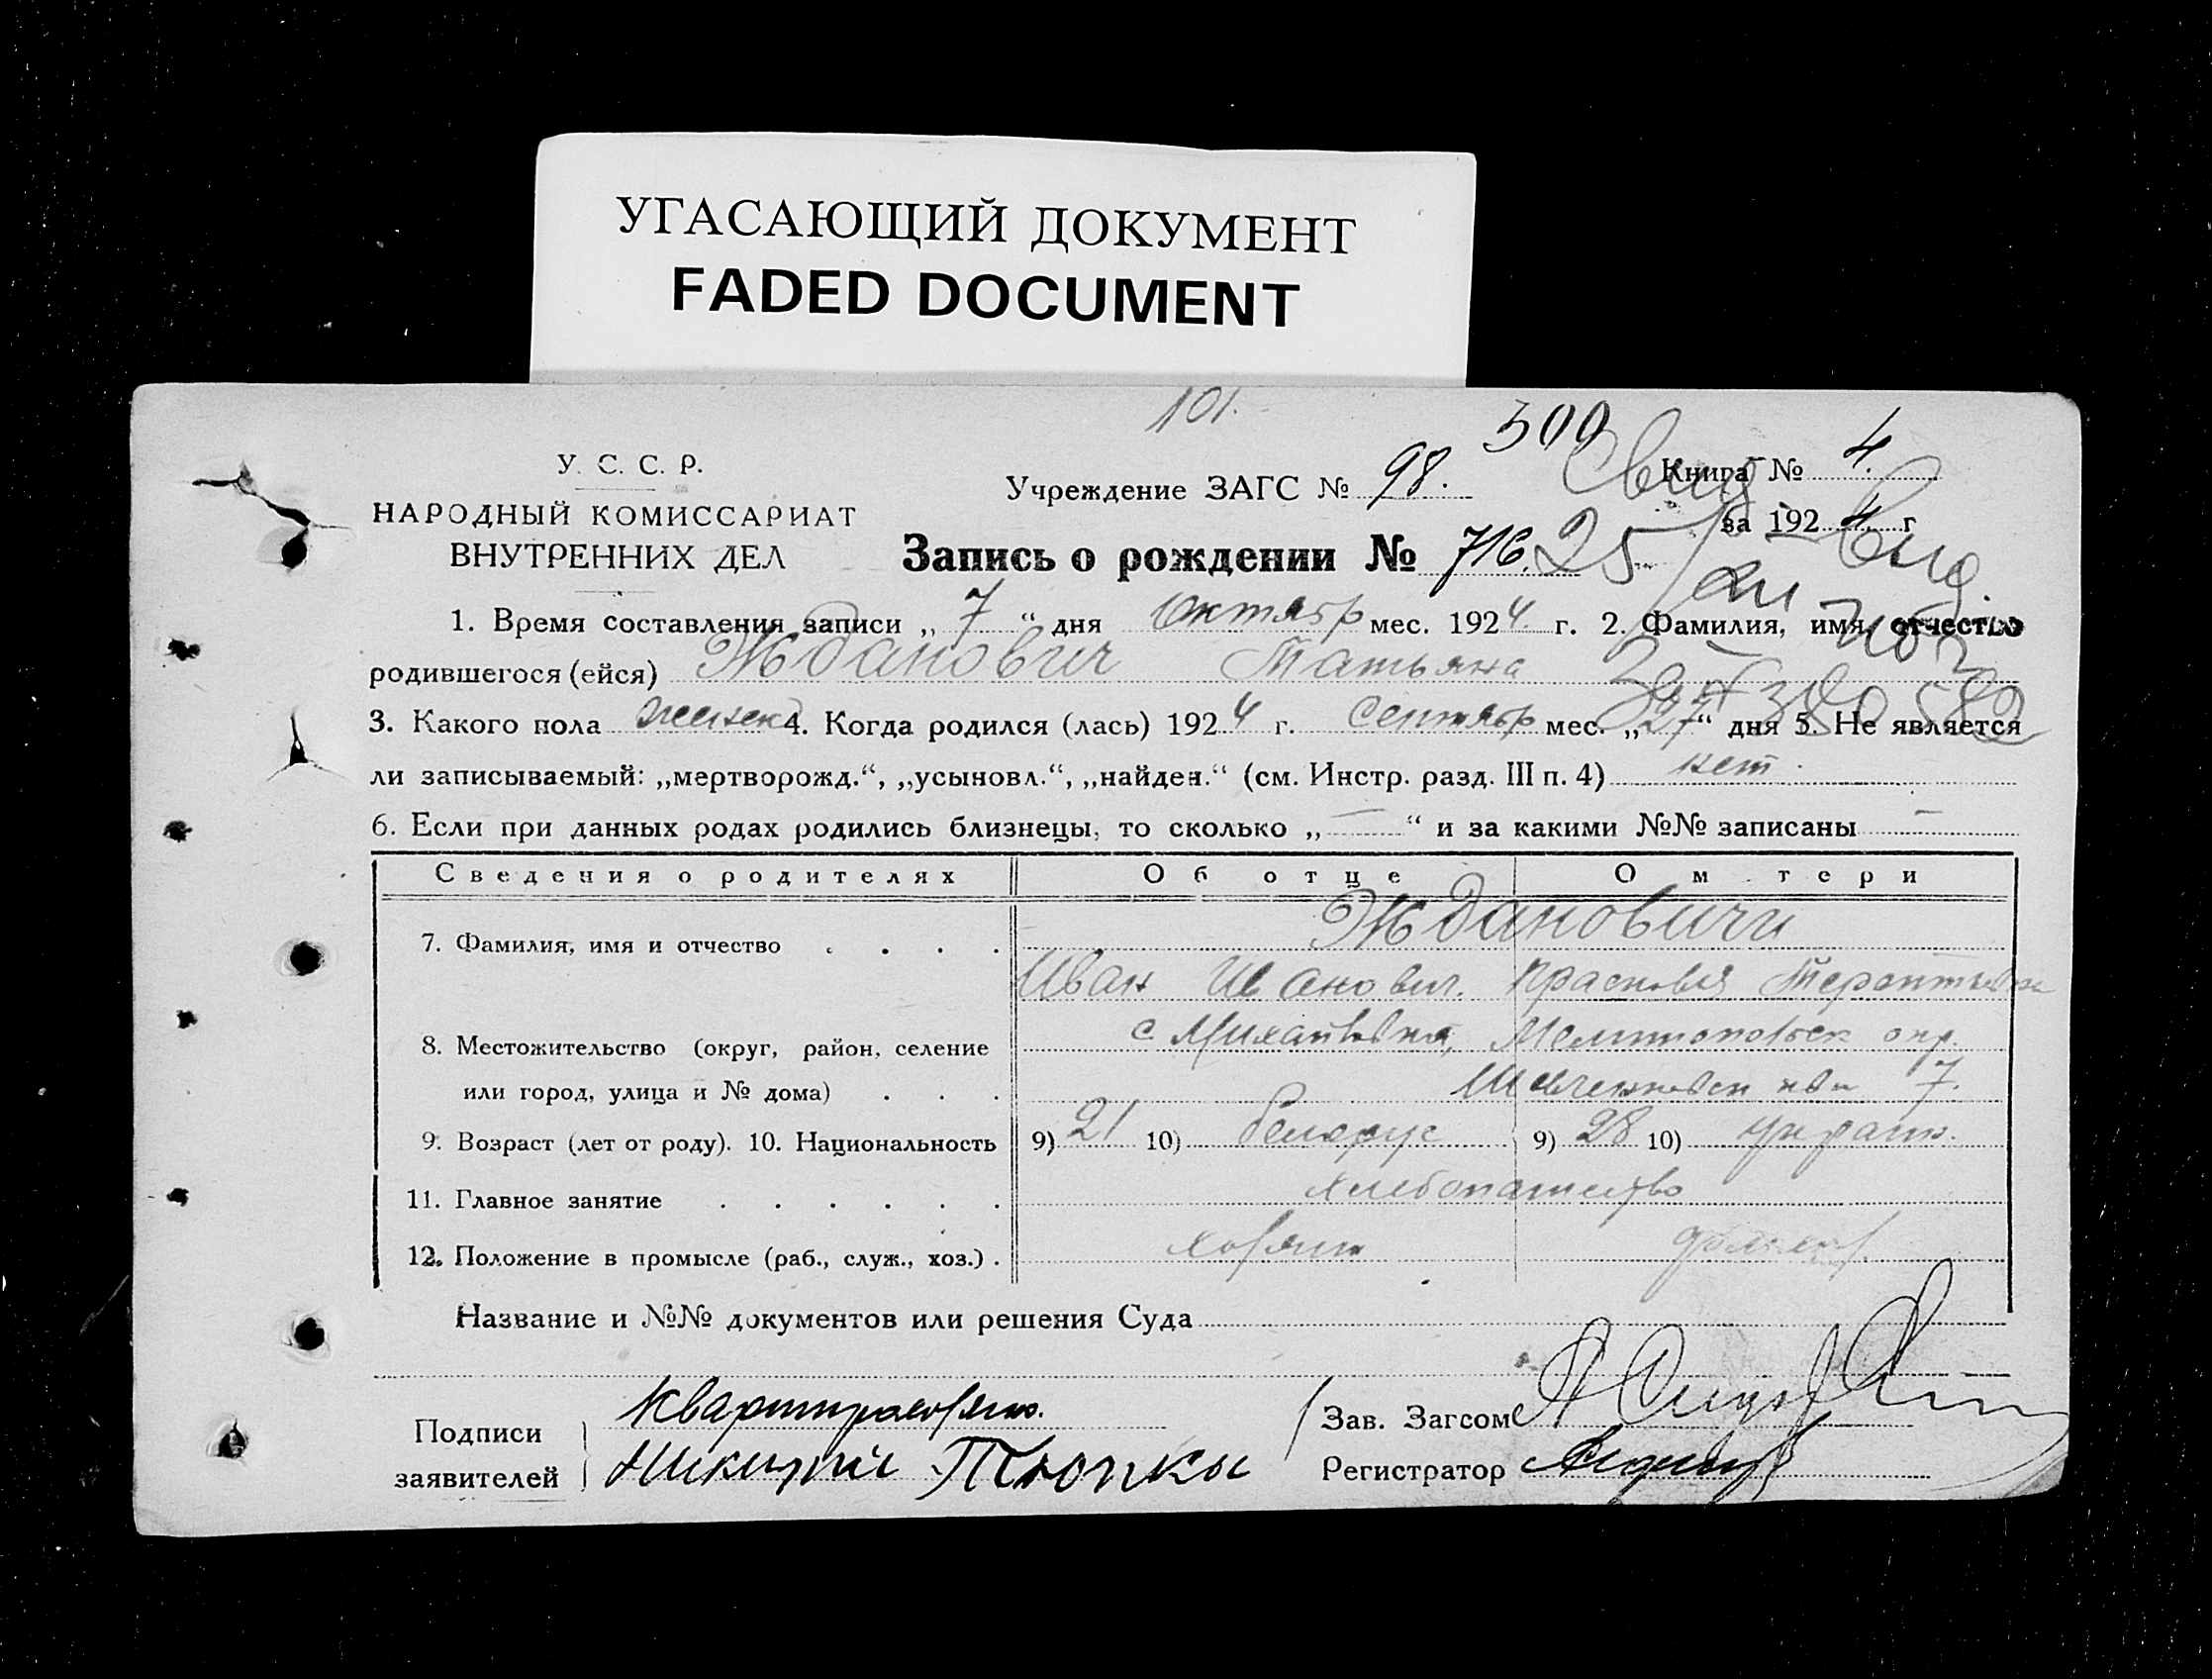 УГАСАЮЩИЙ ДОКУМЕНТ
FADED DOCUMENT
101.
500
У. С. С. Р.
НАРОДНЫЙ КОМИССАРИАТ
ВНУТРЕННИХ ДЕЛ
Учреждение ЗАГС № 98.
Книга № 4.
за 1924 г
Запись о рождении № 716.
25/
1. Время составления записи „ 7 “ дня Октябр мес. 1924 г. 2. Фамилия, имя, отчество
родившегося (ейся) Жданович Татьяна
3. Какого пола женск 4. Когда родился (лась) 1924 г. Сентябр мес. „27“ дня 5. Не является
ли записываемый: „мертворожд.“, „усыновл.“, „найден.“ (см. Инстр. разд. III п. 4) нет.
6. Если при данных родах родились близнецы, то сколько „ — “ и за какими №№ записаны —
Сведения о родителях Об отце О м тери
7. Фамилия, имя и отчество . . . . Ждановичи
Иван Иванович. Прасковья Терентьевна
8. Местожительство (округ, район, селение с Михайловка, Мелитопольск окр.
или город, улица и № дома) . . . 7.
9. Возраст (лет от роду). 10. Национальность 9) 21 10) белорус 9) 28 10) украин.
11. Главное занятие . . . . . . хлебопашество
12. Положение в промысле (раб., служ., хоз.) . хозяин
Название и №№ документов или решения Суда
Подписи Квартирохозяин.
заявителей Никитий Тюпки
Зав. Загсом
Регистратор